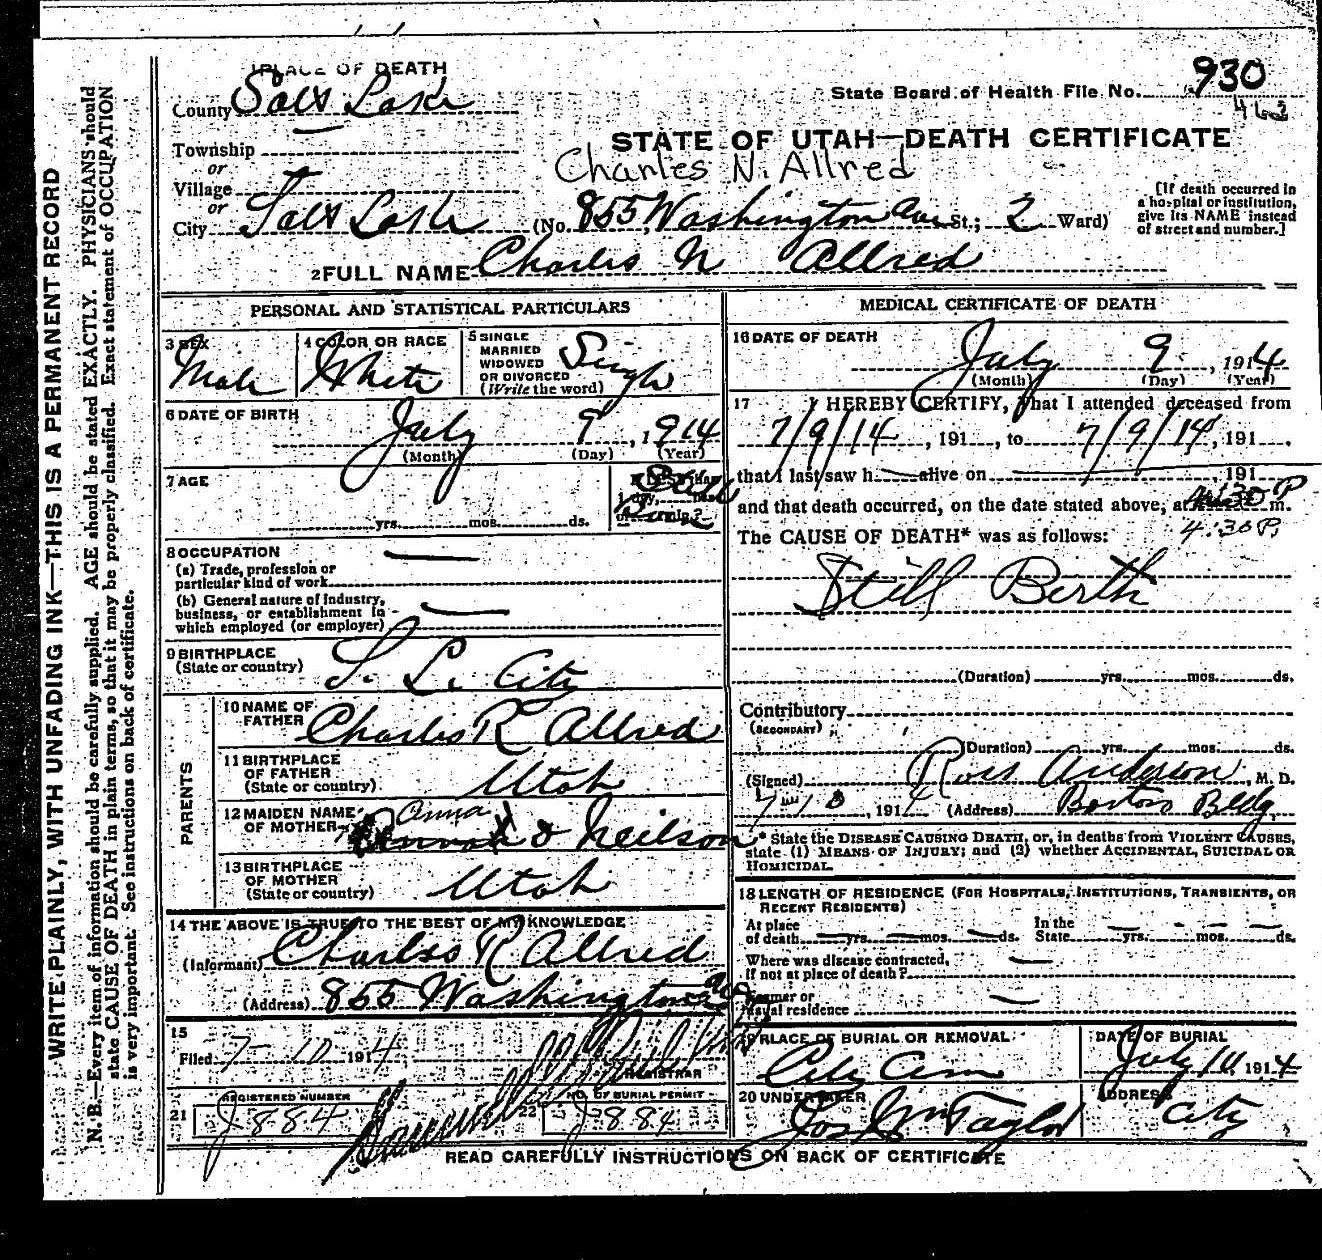 PLACE OF DEATH
County Salt Lake
State Board of Health File No. 930
463
STATE OF UTAH—DEATH CERTIFICATE
Township
or
Village
or
City Salt Lake
Charles N. Allred
(No. 855 Washington Ave St.; 2 Ward)
[If death occurred in
a hospital or institution,
give its NAME instead
of street and number.]
2 FULL NAME Charles N Allred
PERSONAL AND STATISTICAL PARTICULARS
3 SEX
Male
4 COLOR OR RACE
White
5 SINGLE
MARRIED
WIDOWED
OR DIVORCED
(Write the word)
Single
6 DATE OF BIRTH
July 9, 1914
(Month) (Day) (Year)
7 AGE
yrs. mos. ds.
8 OCCUPATION
(a) Trade, profession or
particular kind of work
(b) General nature of industry,
business, or establishment in
which employed (or employer)
9 BIRTHPLACE
(State or country)
S. L. City
PARENTS
10 NAME OF
FATHER
Charles R Allred
11 BIRTHPLACE
OF FATHER
(State or country)
Utah
12 MAIDEN NAME
OF MOTHER
Anna
Neilson
13 BIRTHPLACE
OF MOTHER
(State or country)
Utah
14 THE ABOVE IS TRUE TO THE BEST OF MY KNOWLEDGE
(Informant) Charles R Allred
(Address) 855 Washington Ave
15
Filed 7-10 1914
REGISTRAR
REGISTERED NUMBER
21 J 884
NO. OF BURIAL PERMIT
22 J 884
MEDICAL CERTIFICATE OF DEATH
16 DATE OF DEATH
July 9, 1914
(Month) (Day) (Year)
17 I HEREBY CERTIFY, that I attended deceased from
7/9/14, 191, to 7/9/14, 191.
that I last saw h alive on 191
and that death occurred, on the date stated above, at 4:30 P m.
The CAUSE OF DEATH* was as follows:
4:30 P.
Still Berth
(Duration) yrs. mos. ds.
Contributory
(SECONDARY)
(Duration) yrs. mos. ds.
(Signed) Ross Anderson, M. D.
7-10, 1914 (Address) Boston Bldg.
* State the DISEASE CAUSING DEATH, or, in deaths from VIOLENT CAUSES,
state (1) MEANS OF INJURY; and (2) whether ACCIDENTAL, SUICIDAL OR
HOMICIDAL.
18 LENGTH OF RESIDENCE (FOR HOSPITALS, INSTITUTIONS, TRANSIENTS, OR
RECENT RESIDENTS)
At place
of death yrs. mos. ds.
In the
State yrs. mos. ds.
Where was disease contracted,
if not at place of death?
Former or
usual residence
19 PLACE OF BURIAL OR REMOVAL
City Cem
DATE OF BURIAL
July 10 1914
20 UNDERTAKER
Jos Wm Taylor
ADDRESS
City
READ CAREFULLY INSTRUCTIONS ON BACK OF CERTIFICATE
WRITE PLAINLY, WITH UNFADING INK—THIS IS A PERMANENT RECORD
N. B.—Every item of information should be carefully supplied. AGE should be stated EXACTLY. PHYSICIANS should
state CAUSE OF DEATH in plain terms, so that it may be properly classified. Exact statement of OCCUPATION
is very important. See instructions on back of certificate.